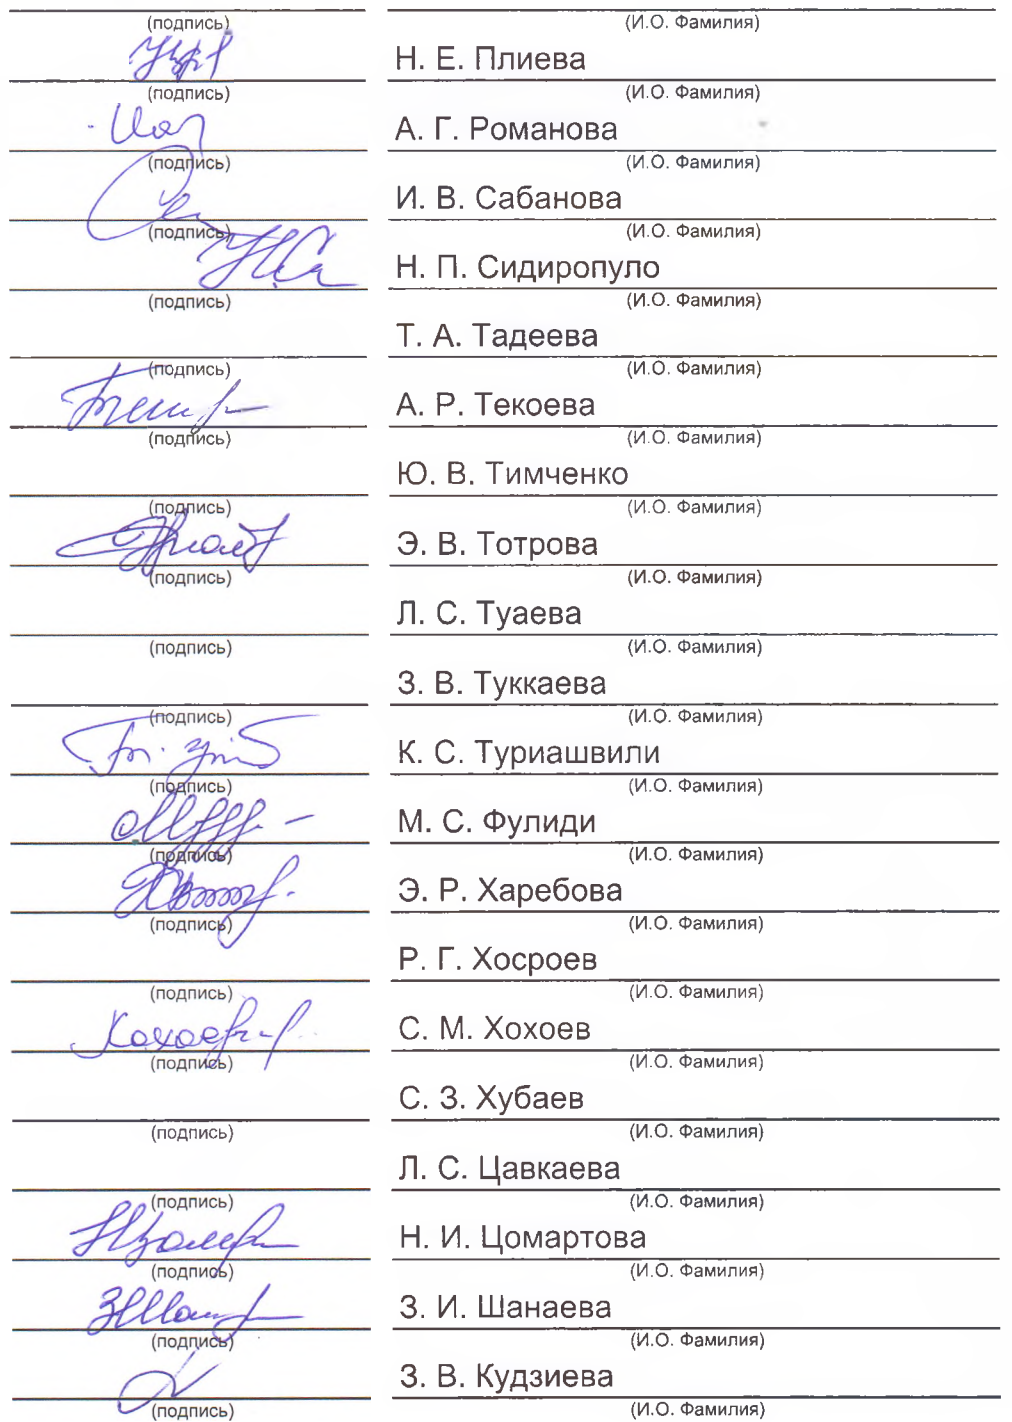 (подпись) (И.О. Фамилия)
Н. Е. Плиева
(подпись) (И.О. Фамилия)
А. Г. Романова
(подпись) (И.О. Фамилия)
И. В. Сабанова
(подпись) (И.О. Фамилия)
Н. П. Сидиропуло
(подпись) (И.О. Фамилия)
Т. А. Тадеева
(подпись) (И.О. Фамилия)
А. Р. Текоева
(подпись) (И.О. Фамилия)
Ю. В. Тимченко
(подпись) (И.О. Фамилия)
Э. В. Тотрова
(подпись) (И.О. Фамилия)
Л. С. Туаева
(подпись) (И.О. Фамилия)
З. В. Туккаева
(подпись) (И.О. Фамилия)
К. С. Туриашвили
(подпись) (И.О. Фамилия)
М. С. Фулиди
(подпись) (И.О. Фамилия)
Э. Р. Харебова
(подпись) (И.О. Фамилия)
Р. Г. Хосроев
(подпись) (И.О. Фамилия)
С. М. Хохоев
(подпись) (И.О. Фамилия)
С. З. Хубаев
(подпись) (И.О. Фамилия)
Л. С. Цавкаева
(подпись) (И.О. Фамилия)
Н. И. Цомартова
(подпись) (И.О. Фамилия)
З. И. Шанаева
(подпись) (И.О. Фамилия)
З. В. Кудзиева
(подпись) (И.О. Фамилия)